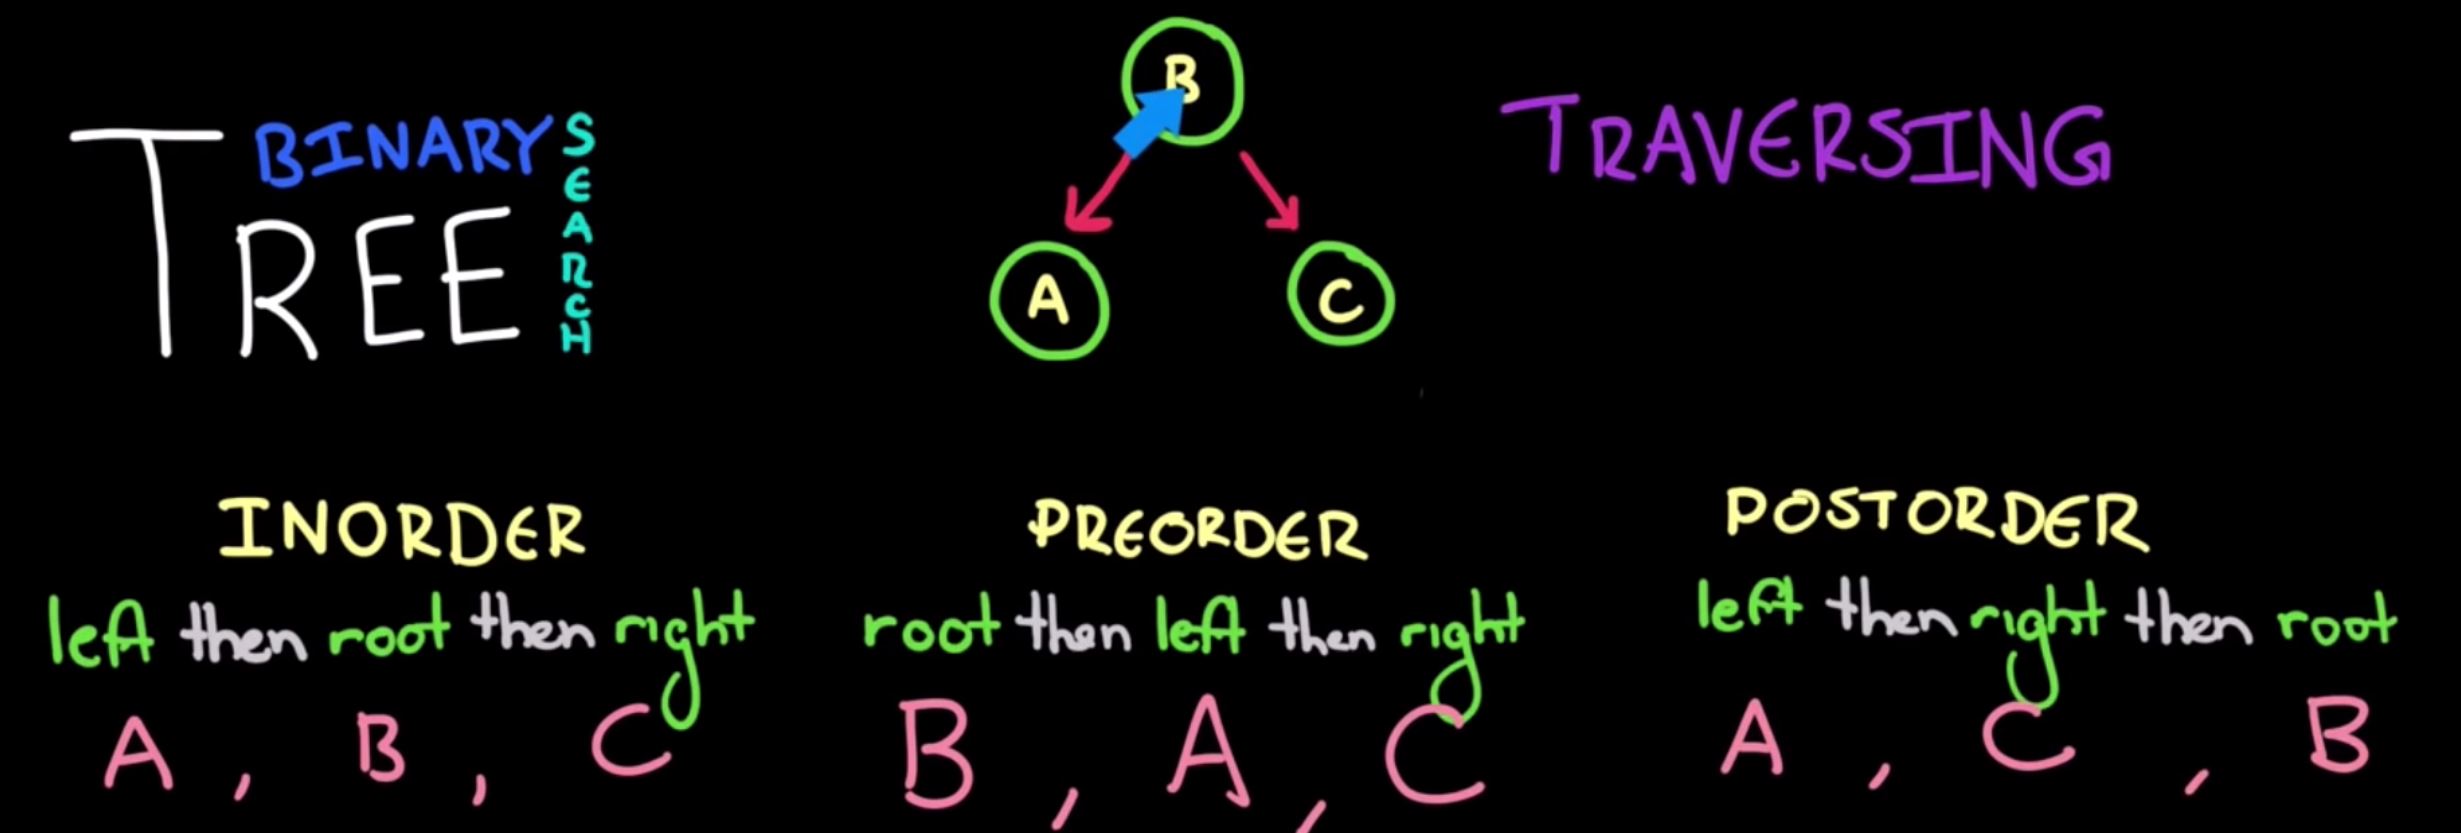 BINARY
SEARCH
TREE
B
A
C
TRAVERSING
INORDER
left then root then right
A, B, C
PREORDER
root then left then right
B, A, C
POSTORDER
left then right then root
A, C, B